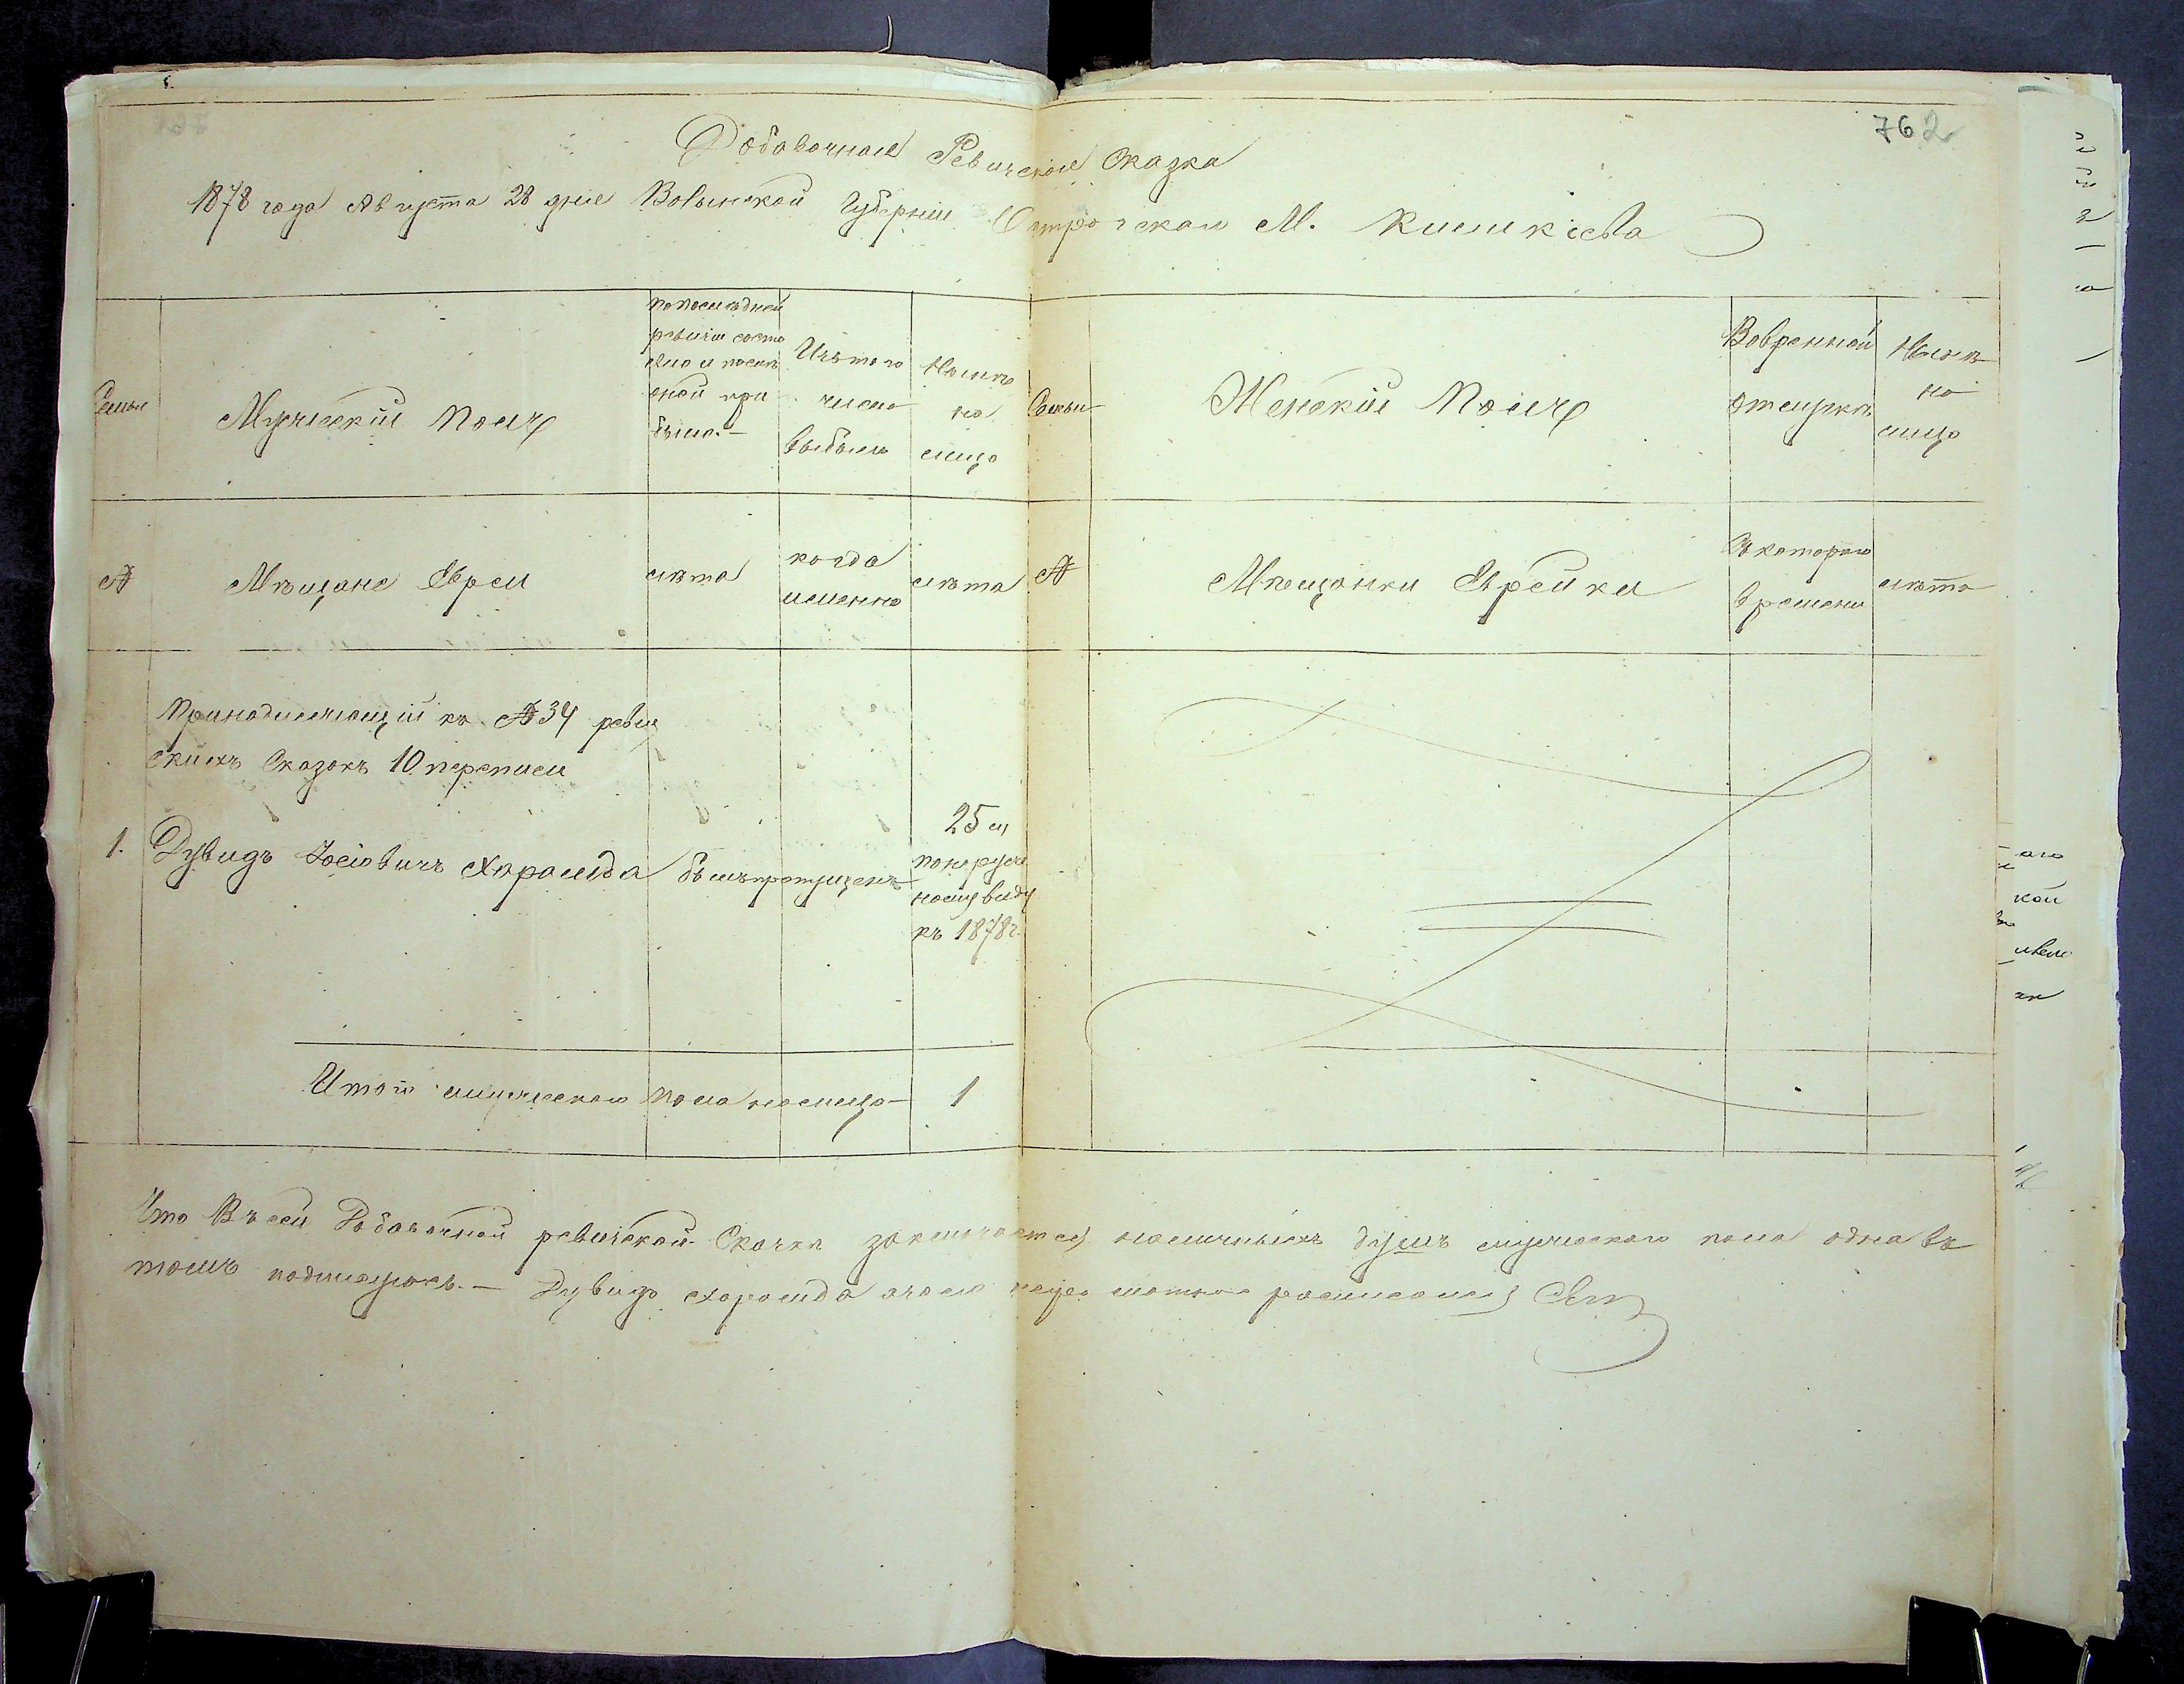 762
Добавочная Ревиская Сказка
1878 года Августа 28 дня Волынской Губерніи Острогскаго М. Киликіева
Семьи
Мужескій Полъ
по последней
ревизіи состо
яло и после
оной при
было.-
Изъ того
числа
выбыло
Ныне
на
лицо
Семьи
Женскій Полъ
Во временной
отлучке
Ныне
на
лицо
№
Мещане Евреи
лета
когда
именно
лета
№
Мещанки Еврейки
Съ котораго
времени
лета
Принадлежащій къ № 34 реви
скихъ Сказокъ 10 переписи
1. Дувидъ Іосіовичъ Харалида былъ пропущенъ
25
по наруж
ному виду
къ 1878г.
Итого мужескаго пола налицо 1
Что Въ сей Добавочной ревиской Сказки заключается наличныхъ душъ мужескаго пола одна въ
томъ подписуюсь.- Дувидъ Харалида